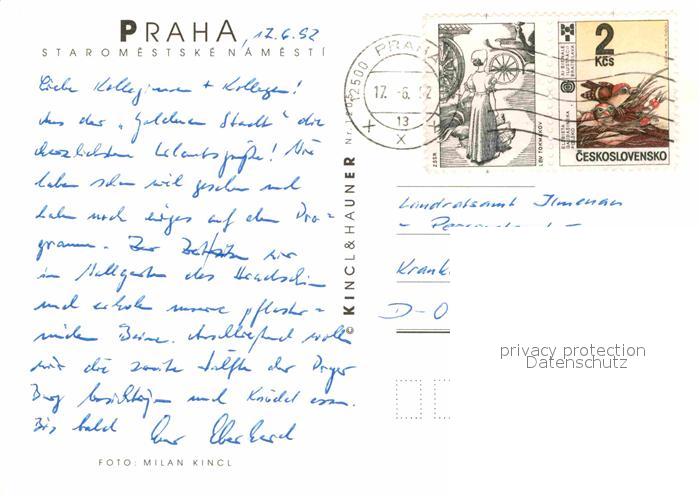 PRAHA, 12.6.92
STAROMĚSTSKÉ NÁMĚSTÍ
Liebe Kolleginnen + Kollegen!
Aus der "Goldenen Stadt" die
herzlichsten Urlaubsgrüße! Wir
haben schon viel gesehen und
haben noch einiges auf dem Pro=
gramm. Zur Zeit sitzen wir
im Wallgarten des Hradschin
und erholen unsere pflaster=
müden Beine. Anschließend wollen
wir die zweite Hälfte der Prager
Burg besichtigen und Knödel essen.
Bis bald Euer Eberhard
FOTO: MILAN KINCL
© KINCL & HAUNER Nr.
12500 PRAHA
12. -6. 92
13
X
ZSSR
LEV TOKMAKOV
2
Kčs
ČESKOSLOVENSKO
Landratsamt Ilmenau
Krank
D-O
privacy protection
Datenschutz